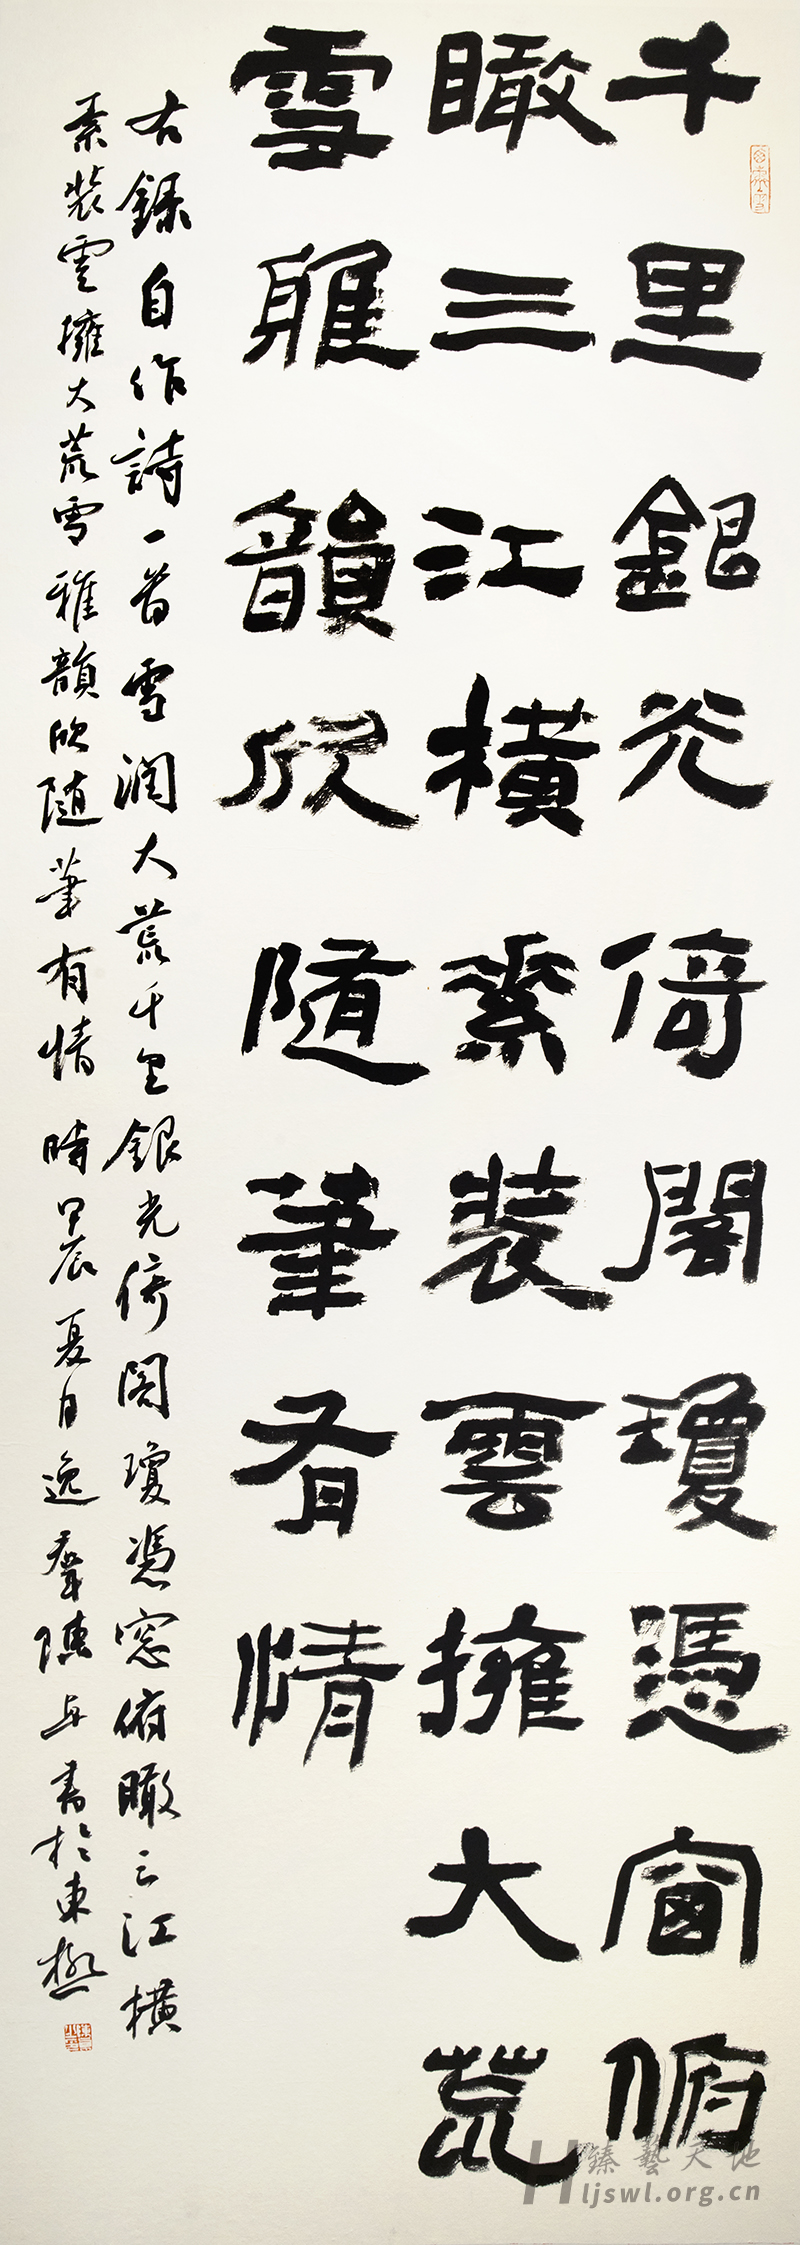 千里銀光倚閣瓊憑窗俯
瞰三江橫素裝雲擁大荒
雪雅韻欣隨筆有情
右錄自作詩一首雪潤大荒千里銀光倚閣瓊憑窓俯瞰三江橫
素裝雲擁大荒雪雅韻欣隨筆有情時甲辰夏月逸群陳書於東極
臻藝天地
Hljswl.org.cn